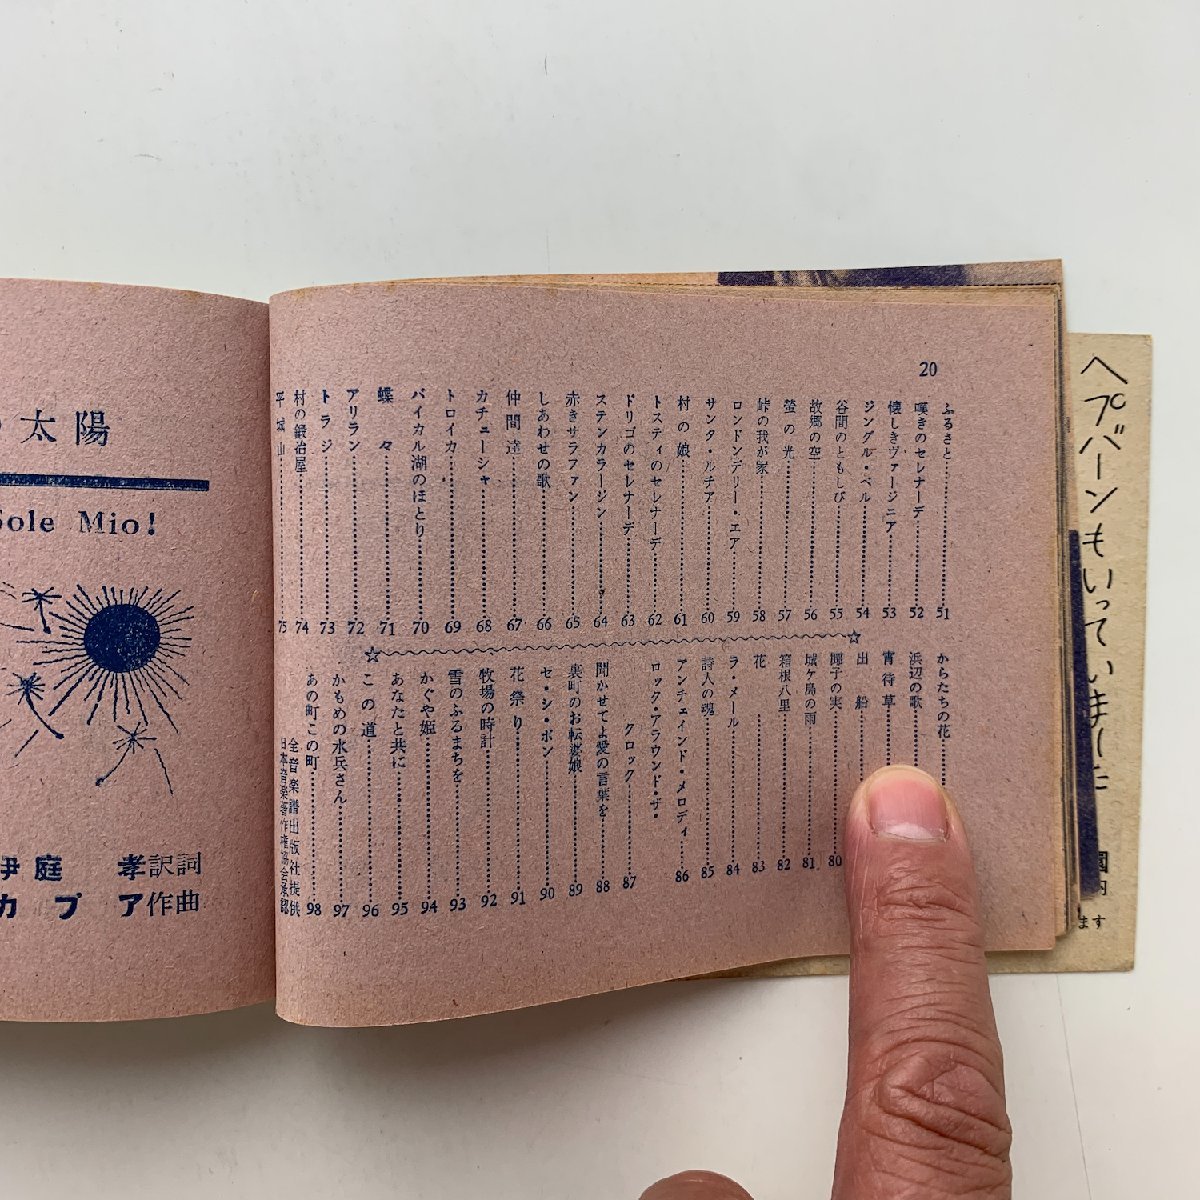 20
ふるさと……51
嘆きのセレナーデ……52
懐しきヴァージニア……53
ジングル・ベル……54
谷間のともしび……55
故郷の空……56
螢の光……57
峠の我が家……58
ロンドンデリー・エア……59
サンタ・ルチア……60
村の娘……61
トスティのセレナーデ……62
ドリゴのセレナーデ……63
ステンカラージン……64
赤きサラファン……65
しあわせの歌……66
仲間達……67
カチューシャ……68
トロイカ……69
バイカル湖のほとり……70
蝶々……71
アリラン……72
トラジ……73
村の鍛冶屋……74
平城山……75
☆〜☆
からたちの花……
浜辺の歌……
宵待草……
出船……
椰子の実……80
城ケ島の雨……81
箱根八里……82
花……83
ラ・メール……84
詩人の魂……85
アンチェインド・メロディ……86
ロック・アラウンド・ザ・
クロック……87
聞かせてよ愛の言葉を……88
裏町のお転婆娘……89
セ・シ・ボン……90
花祭り……91
牧場の時計……92
雪のふるまちを……93
かぐや姫……94
あなたと共に……95
この道……96
かもめの水兵さん……97
あの町この町……98
全音楽譜出版社提供
日本音楽著作権協会承認
太陽
Sole Mio!
伊庭 孝訳詞
カプア作曲
ヘプバーンもいっていました
ます